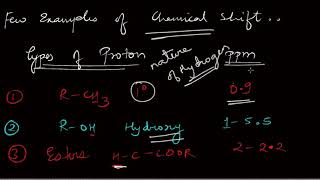 Few Examples of Chemical Shift..
Types of Proton nature of Hydrogen ppm
① R-CH3 1° 0.9
② R-OH Hydroxy 1-5.5
③ Esters H-C-COOR 2-2.2